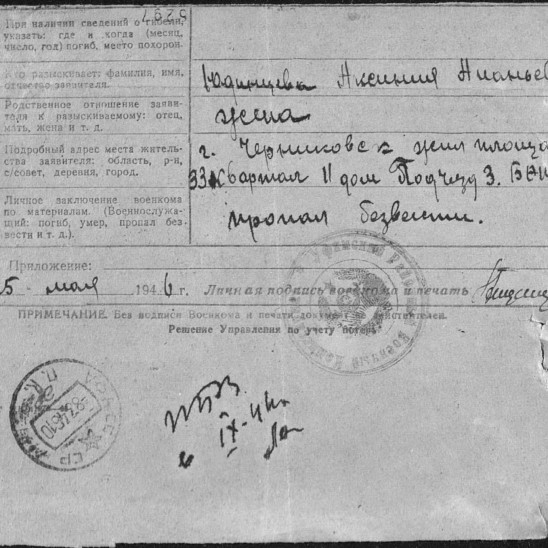 При наличии сведений о гибели,
указать: где и когда (месяц,
число, год) погиб, место похорон.
Кто разыскивает: фамилия, имя,
отчество заявителя.
Юдинцева Аксиния Ананьев
Родственное отношение заяви-
теля к разыскиваемому: отец,
мать, жена и т. д.
жена
Подробный адрес места житель-
ства заявителя: область, р-н,
с/совет, деревня, город.
г. Черниковск жил площа
33 квартал 11 дом Подъезд 3.
Личное заключение военкома
по материалам. (Военнослужа-
щий: погиб, умер, пропал без-
вести и т. д.).
пропал безвести.
Приложение:
5 - мая 1946 г. Личная подпись военкома и печать
ПРИМЕЧАНИЕ. Без подписи Военкома и печати документ не действителен.
Решение Управления по учету потерь.
ПБВ
в IX-41г